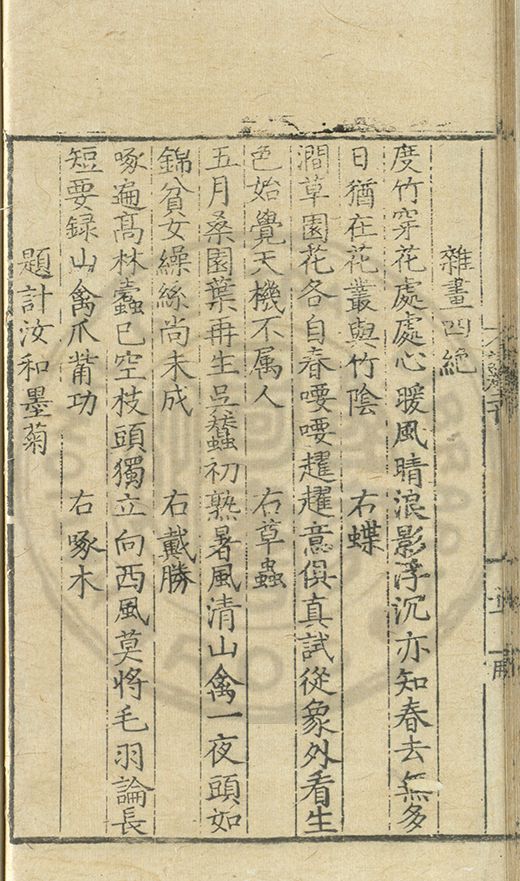 雜畫四絶
度竹穿花處處心暖風晴浪影浮沉亦知春去無多
日猶在花叢與竹陰　右蝶
澗草園花各自春喓喓趯趯意俱真試從象外看生
色始覺天機不属人　右草蟲
五月桑園葉再生吴蠶初熟暑風清山禽一夜頭如
錦貧女繰絲尚未成　右戴勝
啄遍髙林蠧已空枝頭獨立向西風莫將毛羽論長
短要録山禽爪觜功　右啄木
題計汝和墨菊